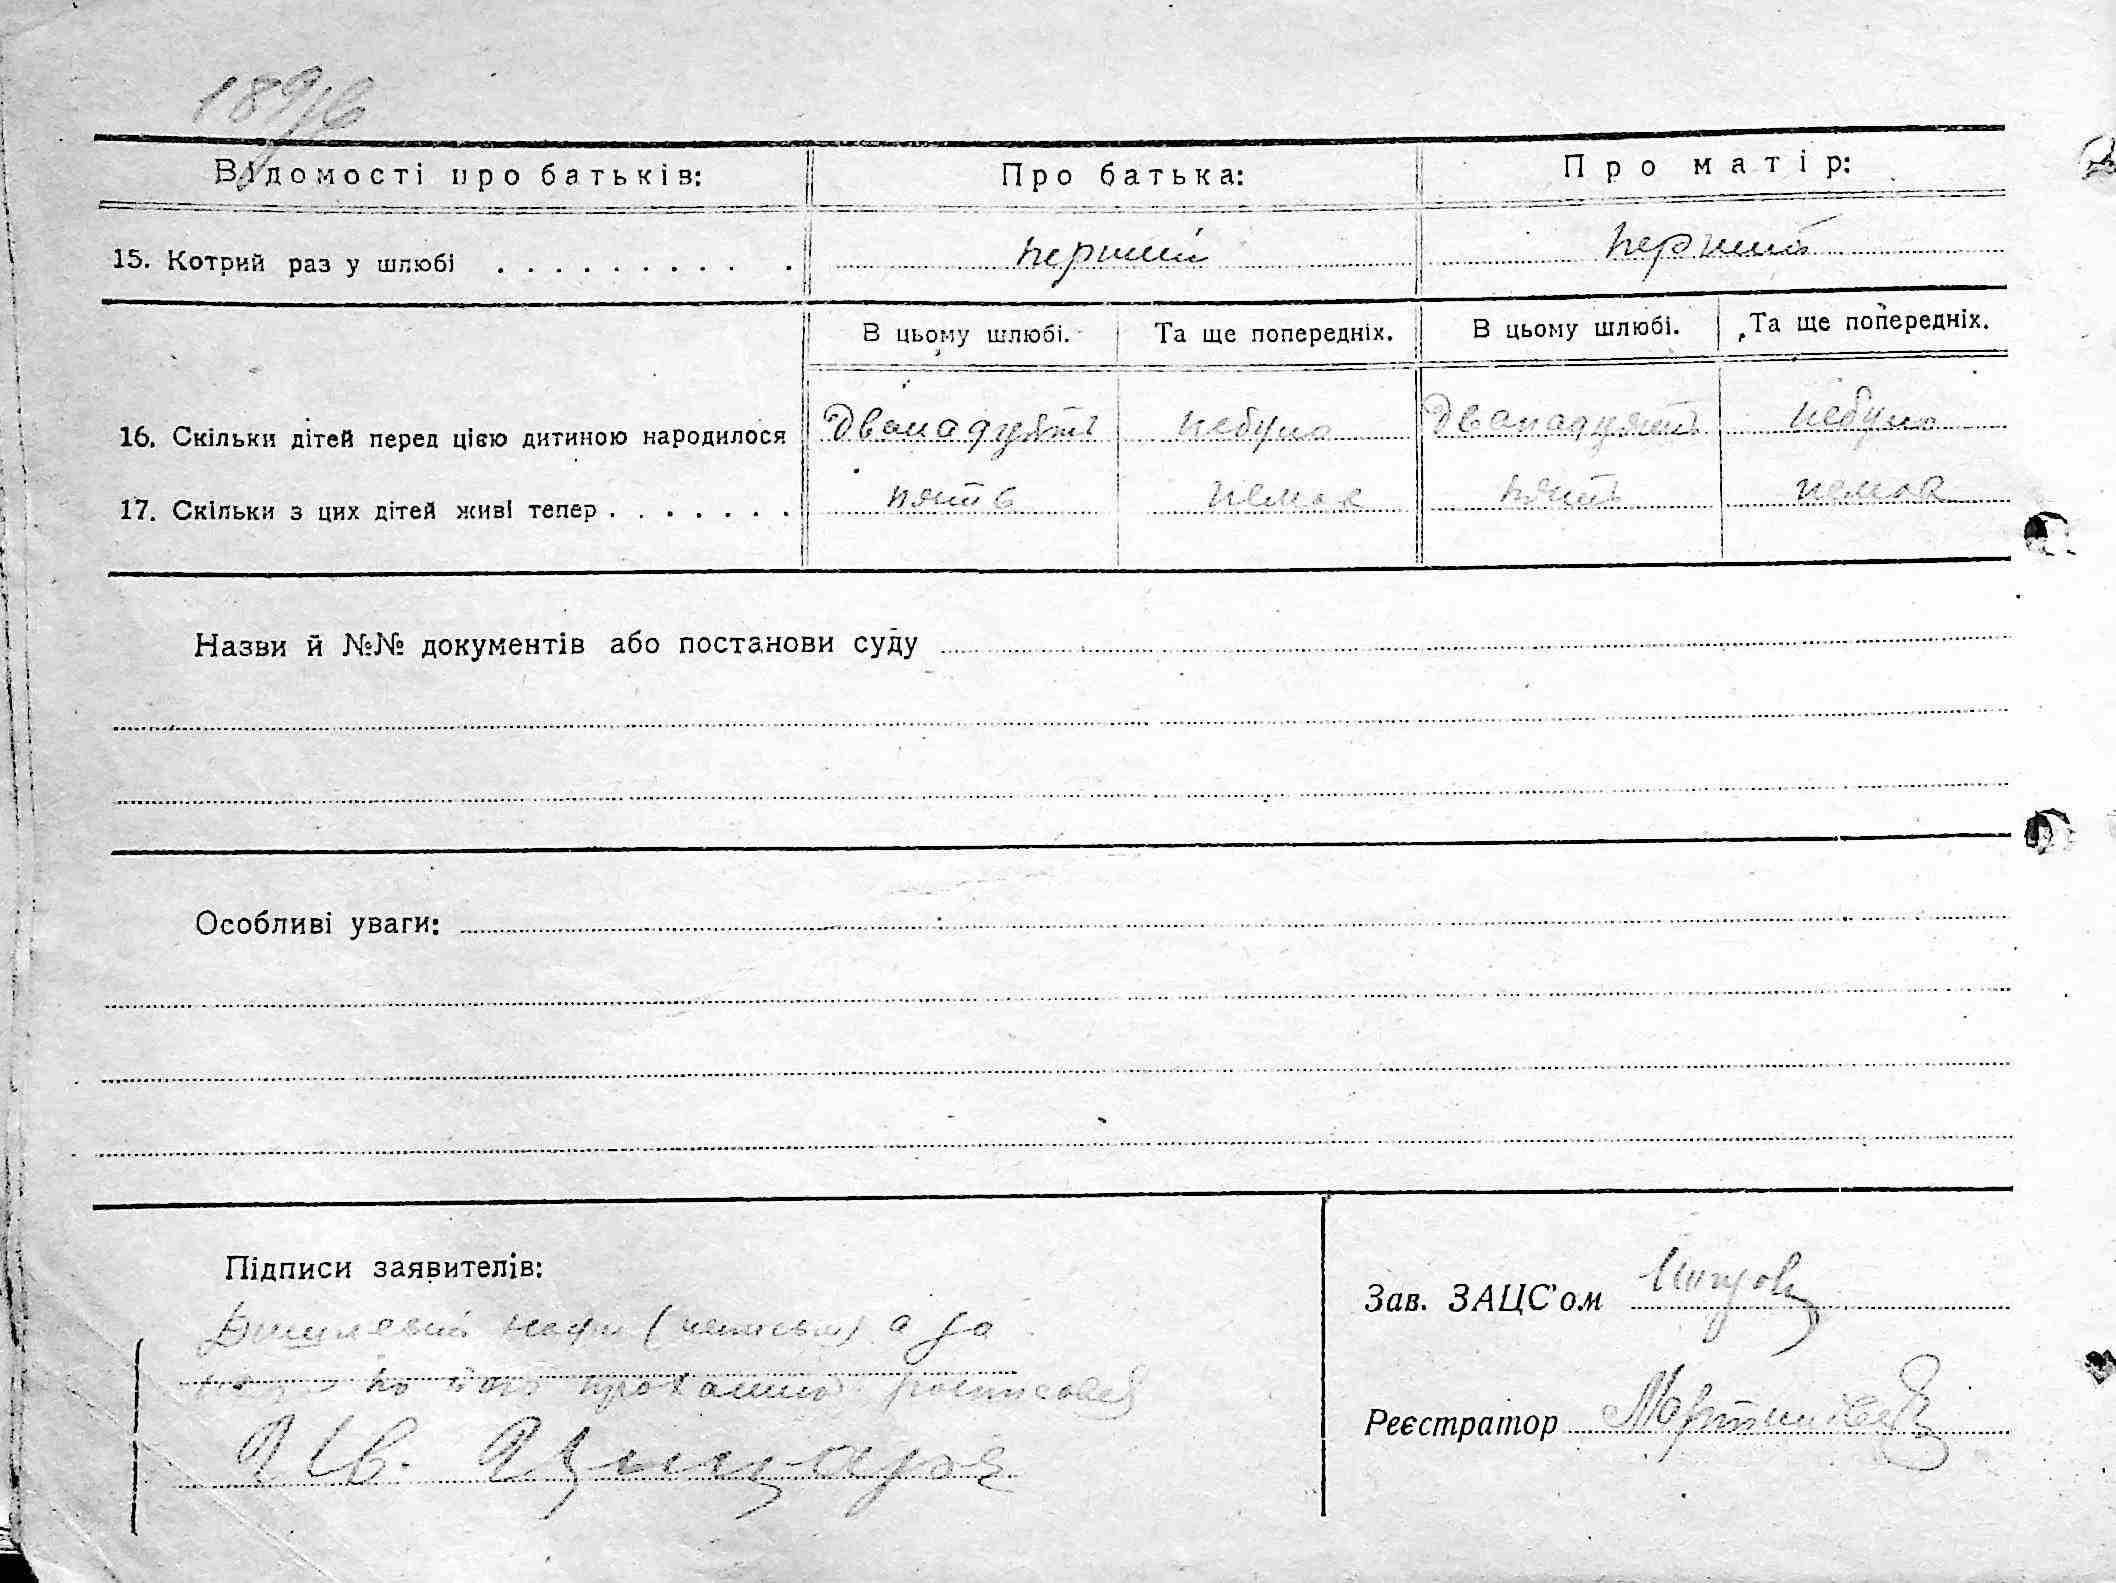 Відомості про батьків: Про батька: Про матір:
15. Котрий раз у шлюбі . . . . . . . . . . перший перший
В цьому шлюбі. Та ще попередніх. В цьому шлюбі. Та ще попередніх.
16. Скільки дітей перед цією дитиною народилося Дванадцять небуло Дванадцять небуло
17. Скільки з цих дітей живі тепер . . . . . . . пять немає пять немає
Назви й №№ документів або постанови суду
Особливі уваги:
Підписи заявителів:
(неписьм) а за
по його проханню росписався
Ів.
Зав. ЗАЦС'ом
Реєстратор